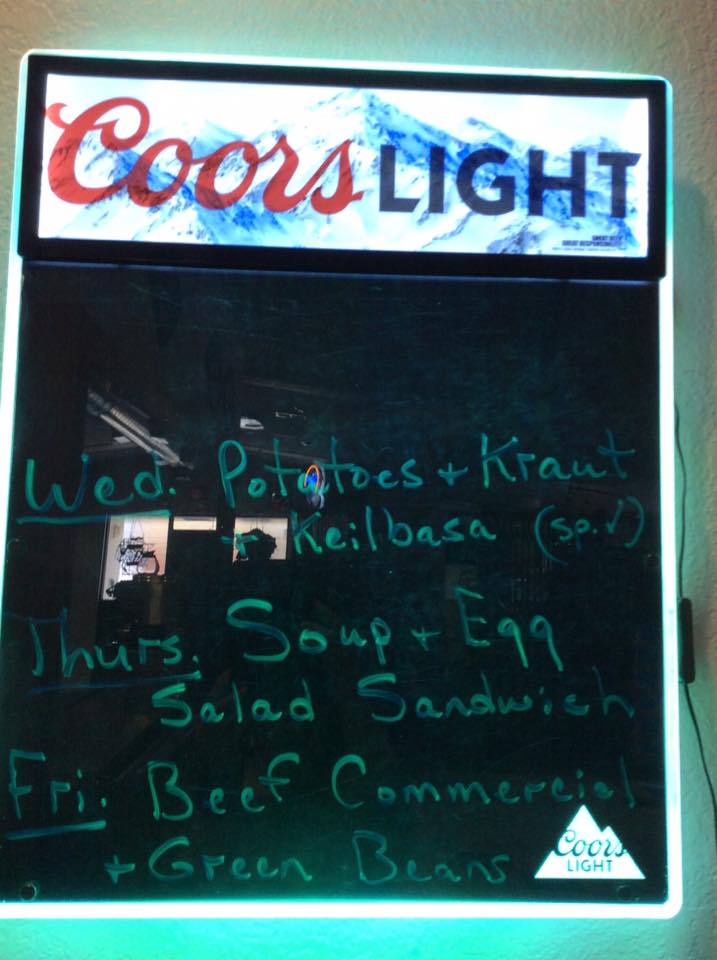 Coors LIGHT
GREAT BEER
GREAT RESPONSIBILITY
Wed. Potatoes + Kraut
+ Keilbasa (sp.✓)
Thurs. Soup + Egg
Salad Sandwich
Fri. Beef Commercial
+ Green Beans
Coors
LIGHT